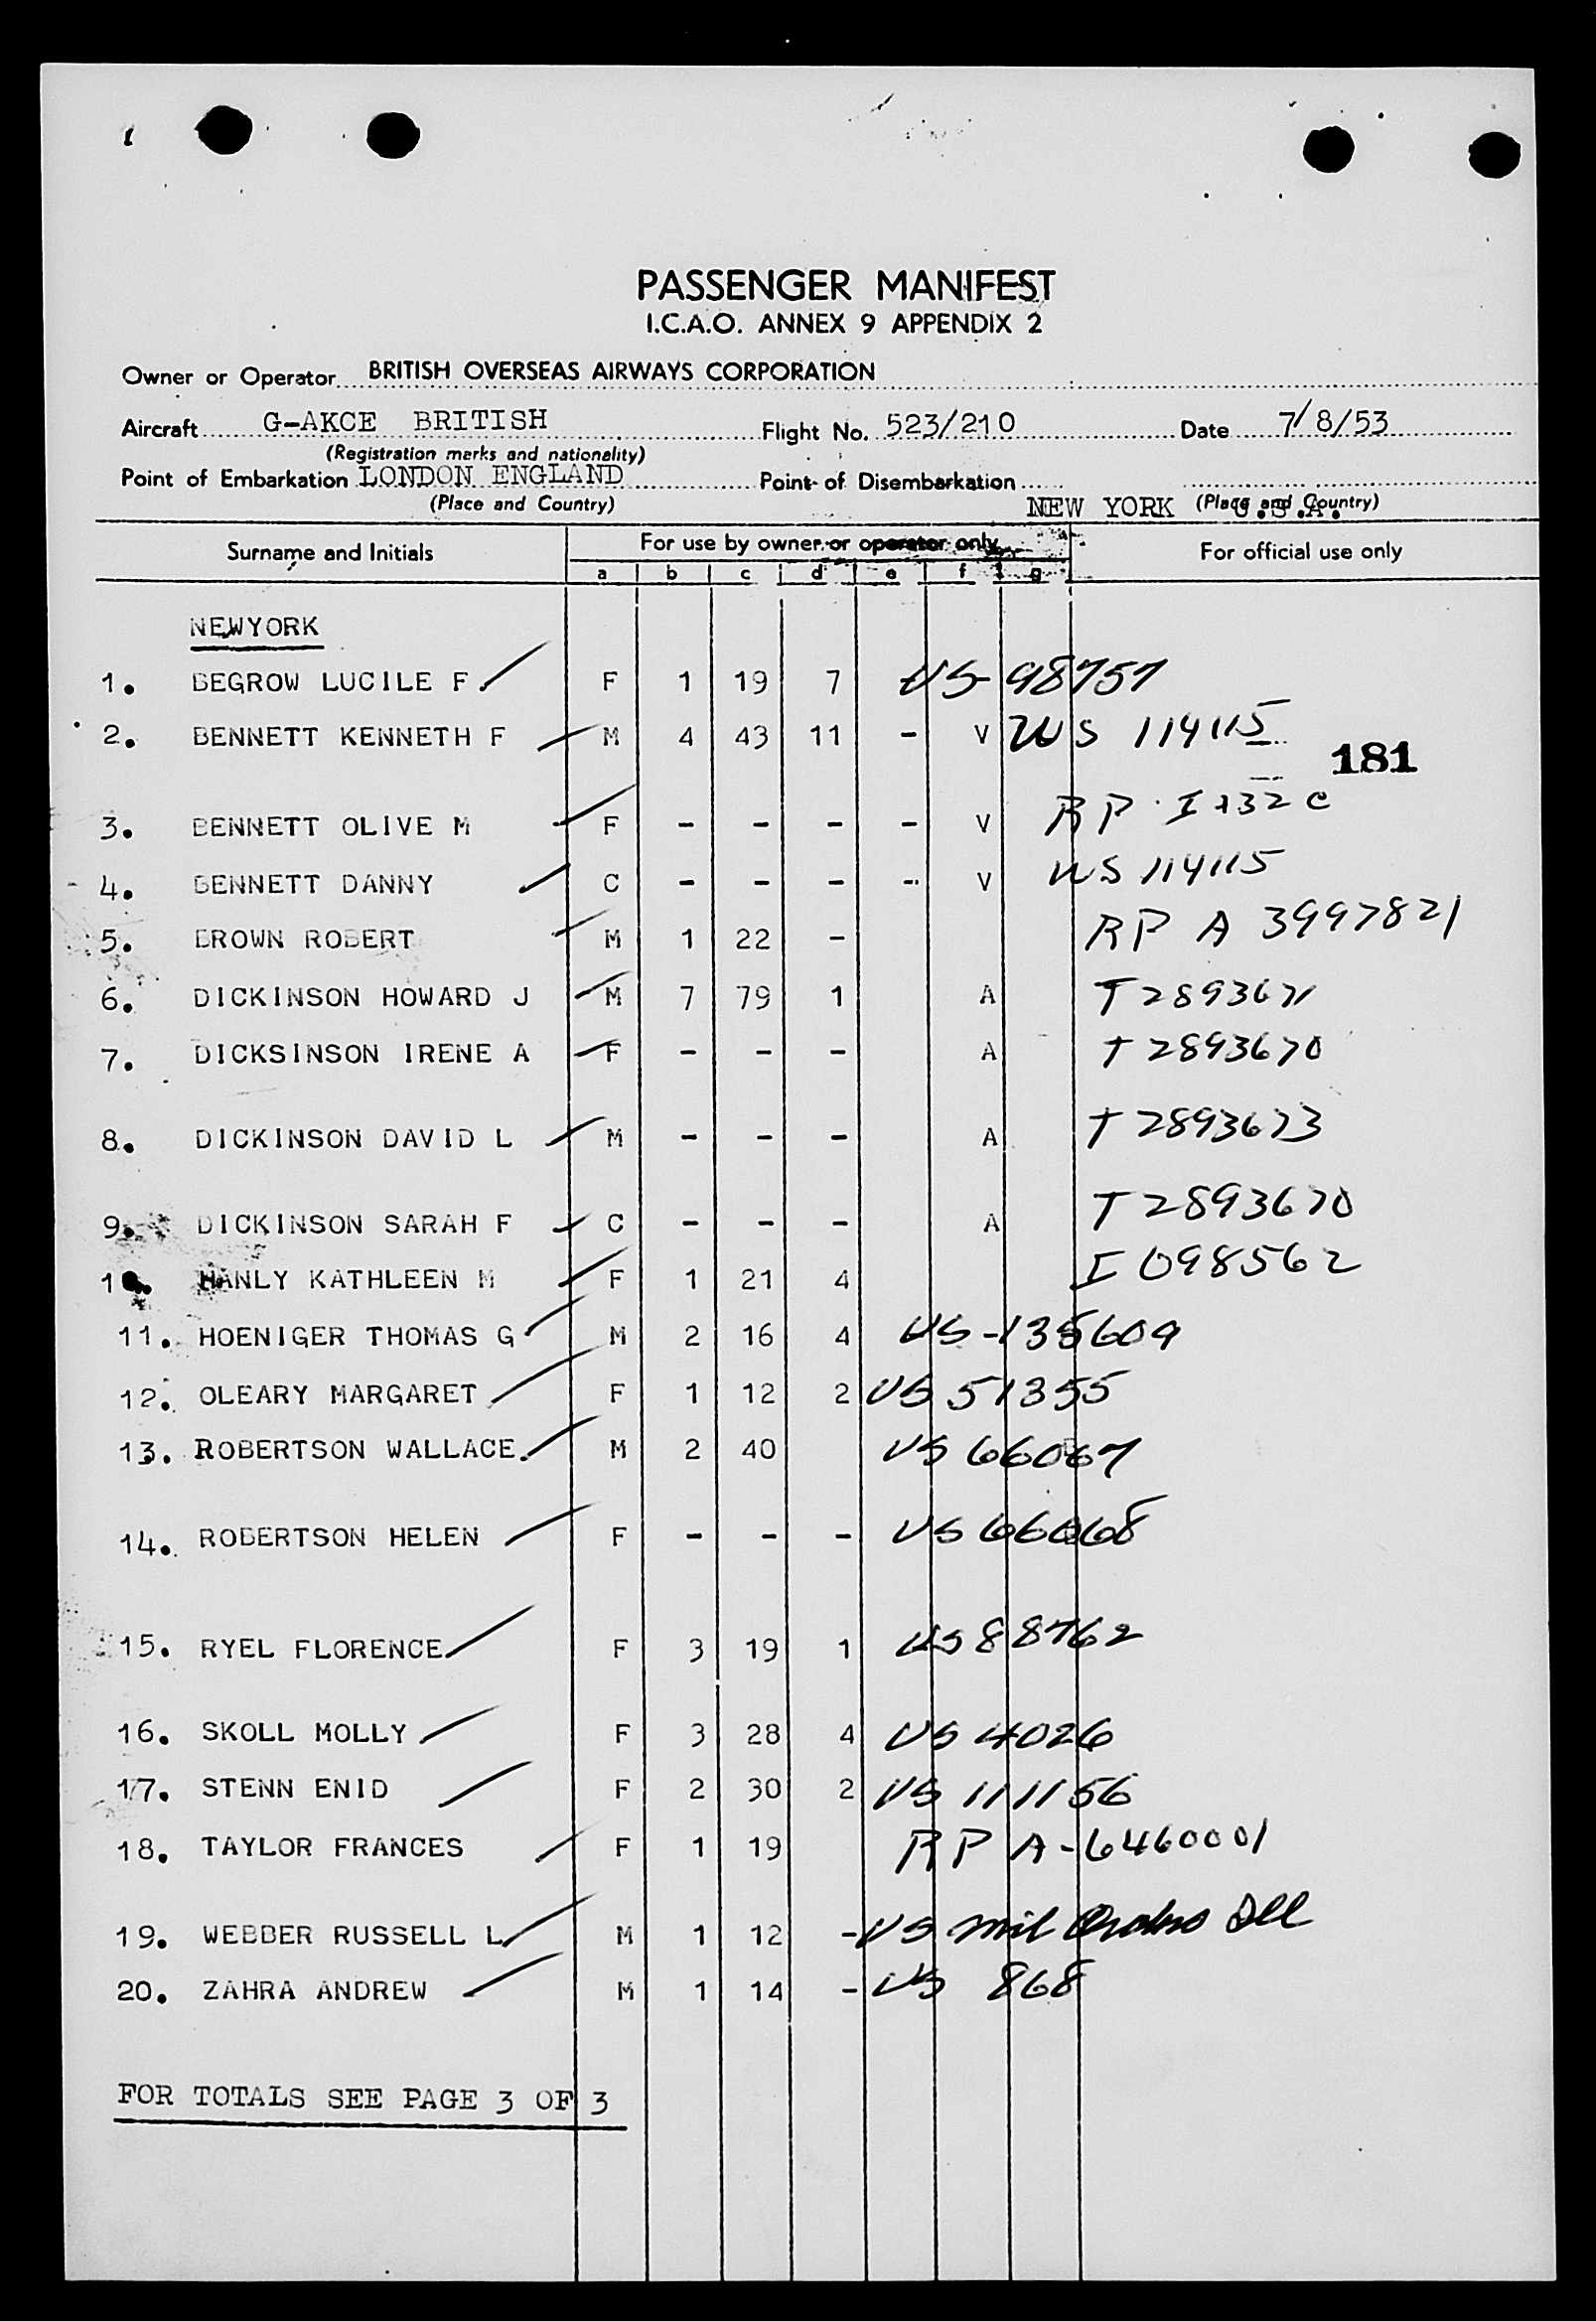 PASSENGER MANIFEST
I.C.A.O. ANNEX 9 APPENDIX 2
Owner or Operator BRITISH OVERSEAS AIRWAYS CORPORATION
Aircraft G-AKCE BRITISH Flight No. 523/210 Date 7/8/53
(Registration marks and nationality)
Point of Embarkation LONDON ENGLAND Point of Disembarkation
(Place and Country) NEW YORK U.S.A. (Place and Country)
Surname and Initials For use by owner or operator only For official use only
a b c d e f g
NEWYORK
1. BEGROW LUCILE F. F 1 19 7 US-98757
2. BENNETT KENNETH F M 4 43 11 - V US 114115
181
3. BENNETT OLIVE M F - - - - V RP
4. BENNETT DANNY C - - - - V US 114115
5. BROWN ROBERT M 1 22 - RP A 3997821
6. DICKINSON HOWARD J M 7 79 1 A T2893671
7. DICKSINSON IRENE A F - - - A T 2893670
8. DICKINSON DAVID L M - - - A T 2893673
9. DICKINSON SARAH F C - - - A T 2893670
10. HANLY KATHLEEN M F 1 21 4 I 098562
11. HOENIGER THOMAS G M 2 16 4 US-135609
12. OLEARY MARGARET F 1 12 2 US 51355
13. ROBERTSON WALLACE. M 2 40 US 66067
14. ROBERTSON HELEN F - - - US 66068
15. RYEL FLORENCE F 3 19 1 US 88762
16. SKOLL MOLLY F 3 28 4 US 4026
17. STENN ENID F 2 30 2 US 111156
18. TAYLOR FRANCES F 1 19 RP A-6460001
19. WEBBER RUSSELL L M 1 12 - US mil Orders
20. ZAHRA ANDREW M 1 14 - US 868
FOR TOTALS SEE PAGE 3 OF 3